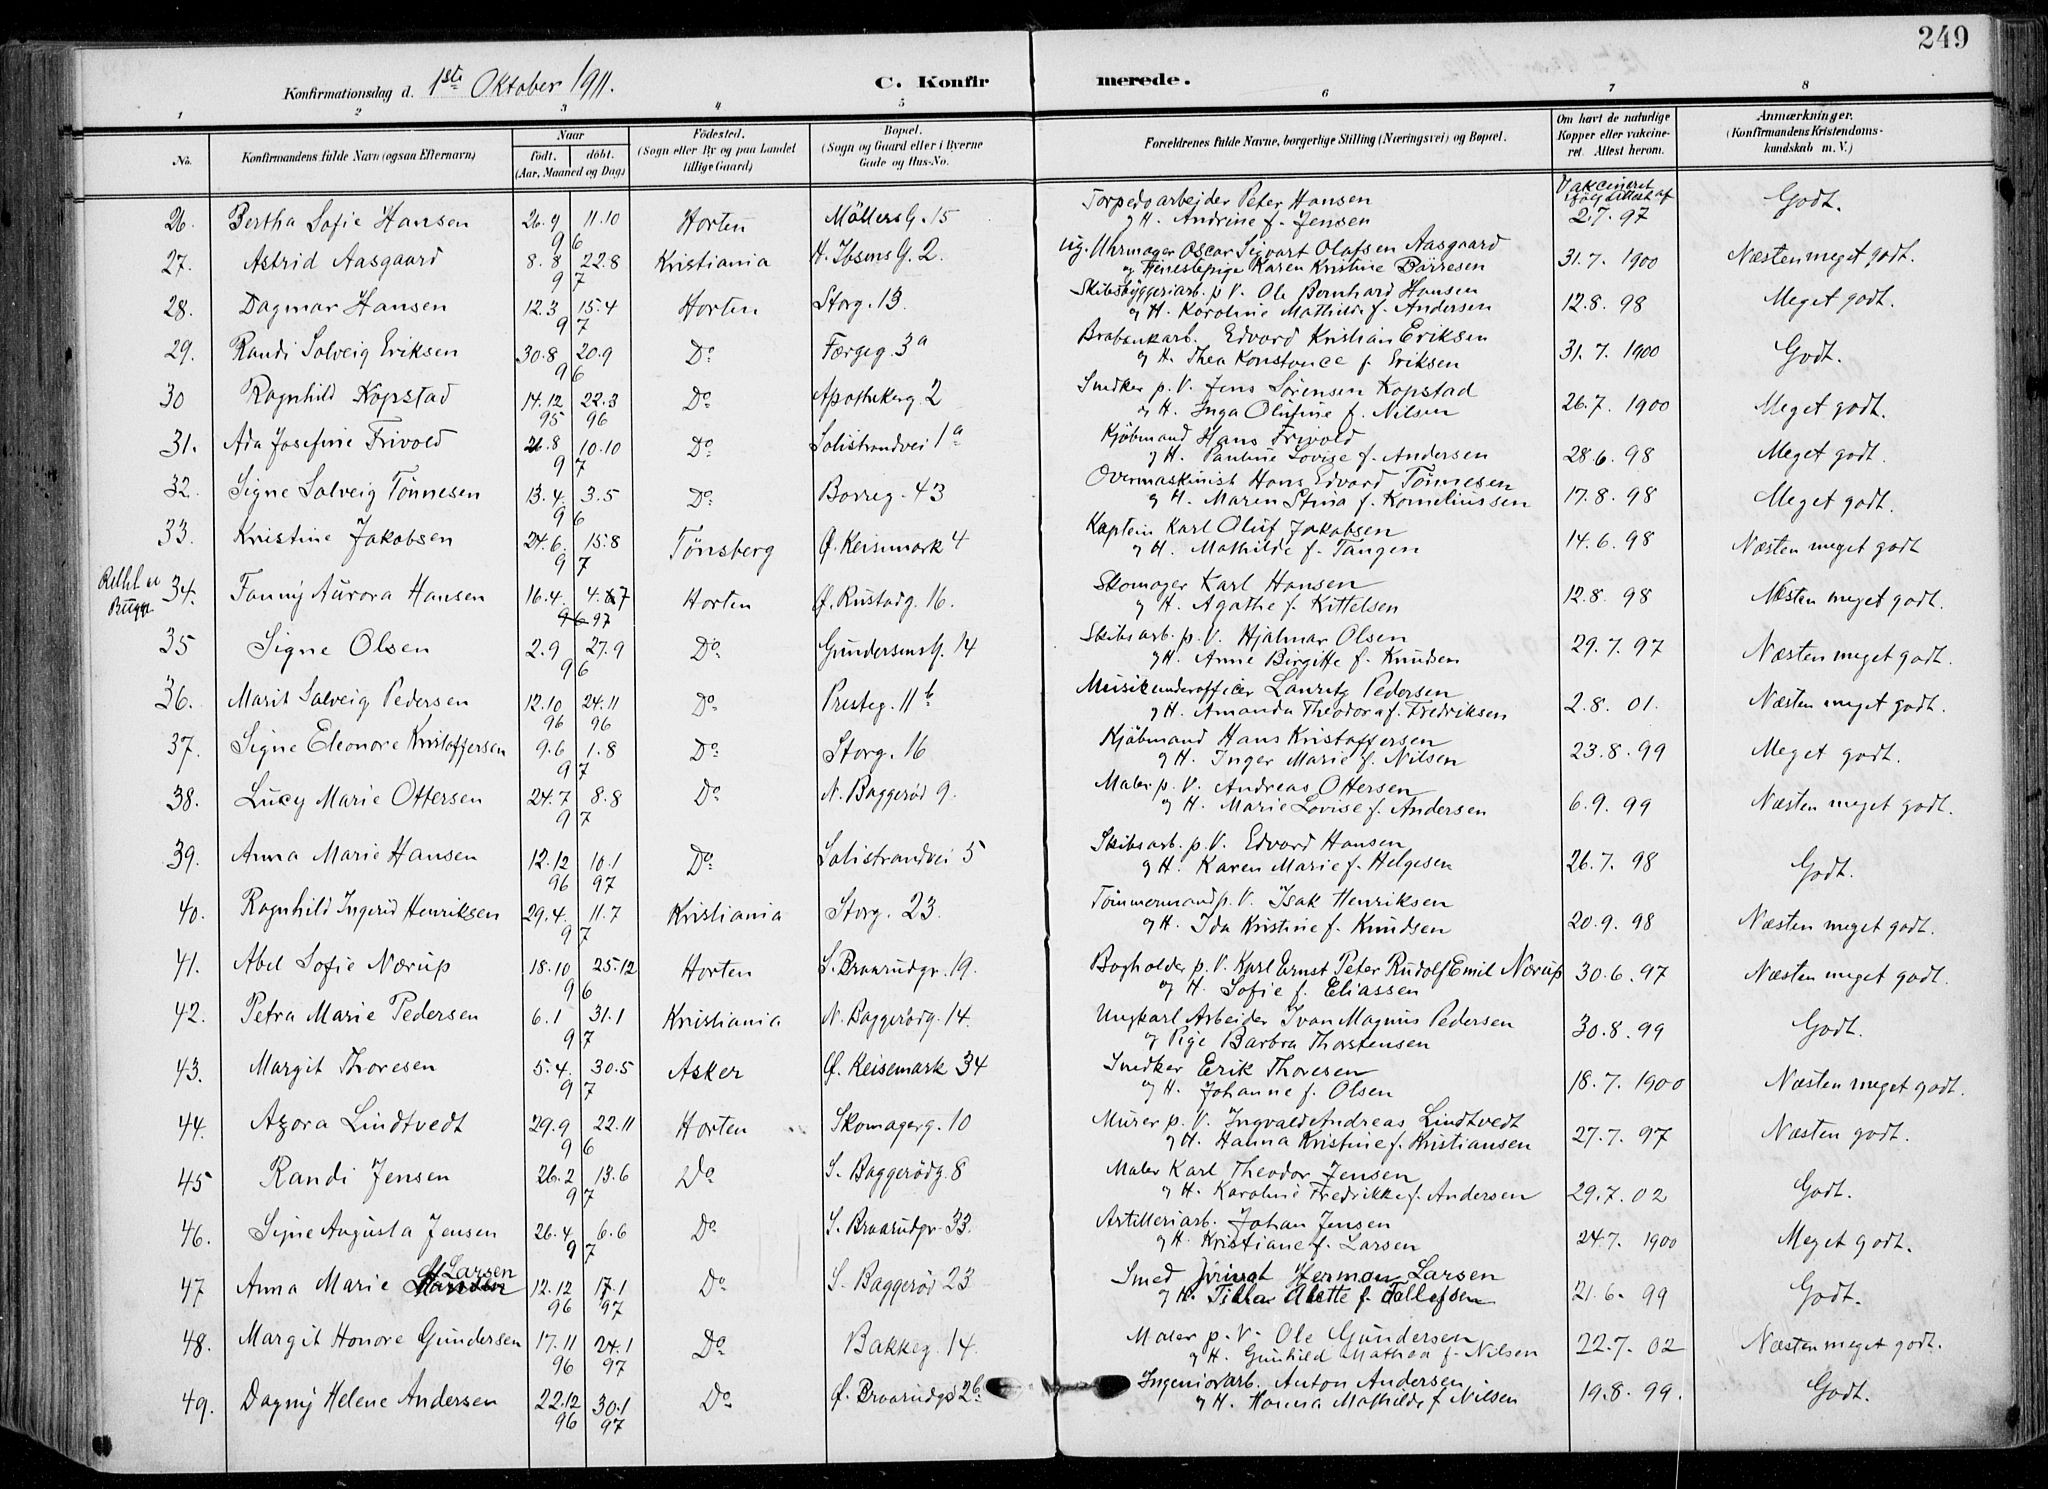 249
Konfirmationsdag d. 1ste Oktober 1911.
C. Konfirmerede.
1 2 3 4 5 6 7 8
No.
Konfirmandens fulde Navn (ogsaa Efternavn)
Naar
födt. döbt.
(Aar, Maaned og Dag)
Födested.
(Sogn eller By og paa Landet
tillige Gaard)
Bopæl.
(Sogn og Gaard eller i Byerne
Gade og Hus-No.
Forældrenes fulde Navne, borgerlige Stilling (Næringsvei) og Bopæl.
Om havt de naturlige
Kopper eller vakcine-
ret. Attest herom.
Anmærkninger.
(Konfirmandens Kristendoms-
kundskab m. V.)
26. Bertha Sofie Hansen 26.9 96 11.10 Horten Möllers G. 15 Torpedoarbejder Peter Hansen
og H. Andrine f. Jensen Vakcineret ifölg Attest af 2.7.97 Godt.
27. Astrid Aasgaard 8.8 97 22.8 Kristiania H. Ibsens G. 2. Ug. Uhrmager Oscar Sigvart Olafsen Aasgaard
og Tjenestepige Karen Kristine Börresen 31.7. 1900 Næsten meget godt.
28. Dagmar Hansen 12.3 97 15.4 Horten Storg. 13. Skibsbyggeriarb. p V. Ole Bernhard Hansen
og H. Karoline Mathilde f. Andersen 12.8. 98 Meget godt.
29. Randi Solveig Eriksen 30.8 96 20.9 Do Færgeg. 3a Brobænkarb. Edvard Kristian Eriksen
og H. Thea Konstance f. Eriksen 31.7. 1900 Godt.
30 Ragnhild Kopstad 14.12 95 22.3 96 Do Apothekerg. 2 Snedker p. V. Jens Sörensen Kopstad
og H. Inga Olufine f. Nilsen 26.7. 1900 Meget godt.
31. Ada Josefine Frivold 26.8 97 10.10 Do Solistrandvei 1a Kjöbmand Hans Frivold
og H. Pauline Lovise f. Andersen 28.6. 98 Meget godt.
32. Signe Solveig Tönnesen 13.4. 96 3.5 Do Borreg. 43 Overmaskinist Hans Edvard Tönnesen
og H. Maren Stina f. Korneliussen 17.8. 98 Meget godt.
33. Kristine Jakobsen 24.6. 97 15.8 Tönsberg Ø. Keisemark 4 Kaptein Karl Oluf Jakobsen
og H. Mathilde f. Tangen 14.6. 98 Næsten meget godt
34. Fanny Aurora Hansen 16.4. 4.7 96 97 Horten Ø. Rustadg. 16. Skomager Karl Hansen
og H. Agathe f. Kittelsen 12.8. 98 Næsten meget godt.
35 Signe Olsen 2.9 96 27.9 Do Gundersens G. 14 Skibsarb. p. V. Hjalmar Olsen
og H. Anne Birgitte f. Knudsen 29.7. 97 Næsten meget godt.
36. Marit Solveig Pedersen 12.10 96 24.11 96 Do Presteg. 11b Musikunderofficer Lauritz Pedersen
og H. Amanda Theodora f. Fredriksen 2.8. 01. Næsten meget godt.
37. Signe Eleonore Kristoffersen 9.6 97 1.8 Do Storg. 16 Kjöbmand Hans Kristoffersen
og H. Inger Marie f. Nilsen 23.8.99 Meget godt.
38. Lucy Marie Ottersen 24.7 97 8.8 Do N. Baggeröd 9. Maler p. V. Andreas Ottersen
og H. Marie Lovise f. Andersen 6.9. 99 Næsten meget godt.
39. Anna Marie Hansen 12.12 96 10.1 97 Do Solistrandvei 5 Skibsarb. p. V. Edvard Hansen
og H. Karen Marie f. Helgesen 26.7. 98 Godt.
40. Ragnhild Ingerid Henriksen 29.4. 97 11.7 Kristiania Storg. 23. Tömmermand p. V. Isak Henriksen
og H. Ida Kristine f. Knudsen 20.9. 98 Næsten meget godt.
41. Abel Sofie Nærup 18.10 96 25.12 Horten S. Braarudgr. 19. Bogholder p. V. Karl Ernst Peter Rudolf Emil Nærup
og H. Sofie f. Eliassen 30.6. 97 Næsten meget godt.
42. Petra Marie Pedersen 6.1 97 31.1 Kristiania N. Baggerödg. 14. Ungkarl Arbeider Ivan Magnus Pedersen
og Pige Barbra Thorstensen 30.8. 99 Godt.
43. Margit Thoresen 5.4. 97 30.5 Asker Ø. Keisemark 34 Snedker Erik Thoresen
og H. Johanne f. Olsen 18.7. 1900 Næsten meget godt.
44. Azora Lindtvedt 29.9 96 22.11 Horten Skomagerg. 10 Murer p. V. Ingvald Andreas Lindtvedt
og H. Hanna Kristine f. Kristiansen 27.7. 97 Næsten godt.
45 Randi Jensen 26.2 97 13.6 Do S. Baggerödg. 8 Maler Karl Theodor Jensen
og H. Karoline Fredrikke f. Andersen 29.7. 02 Godt.
46. Signe Augusta Jensen 26.4 97 6.6 Do S. Braarudgr. 33. Artilleriarb. Johan Jensen
og H. Kristiane f. Larsen 24.7. 1900 Meget godt.
47 Anna Marie Larsen 12.12 96 17.1 97 Do S. Baggeröd 23 Smed Herman Larsen
og H. Alette f. Tollefsen 21.6. 99 Godt.
48. Margit Honore Gundersen 17.11 96 24.1 97 Do Bakkeg. 14. Maler p. V. Ole Gundersen
og H. Gunhild Mathea f. Nilsen 22.7. 02 Næsten meget godt.
49. Dagny Helene Andersen 22.12 96 30.1 97 Do Ø. Braarudgr 26. Ingeniörarb. Anton Andersen
og H. Hanna Mathilde f Nilsen 19.8. 99. Godt.